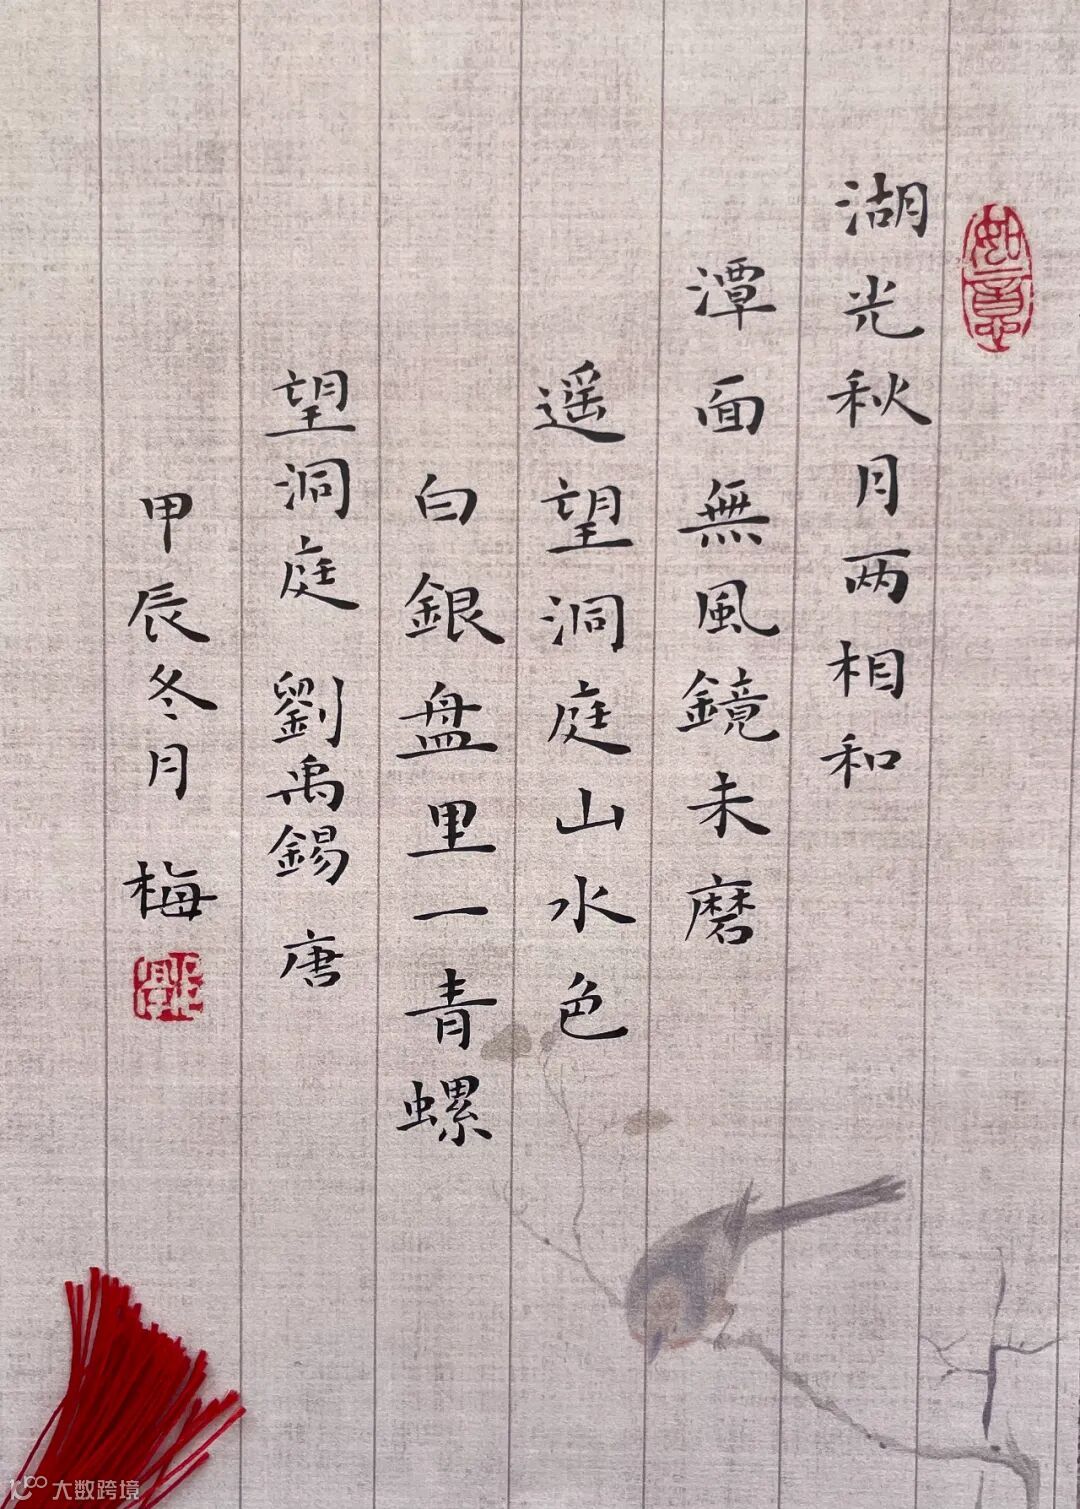 如意
湖光秋月两相和
潭面無風鏡未磨
遥望洞庭山水色
白銀盘里一青螺
望洞庭 劉禹錫 唐
甲辰冬月 梅
大数跨境